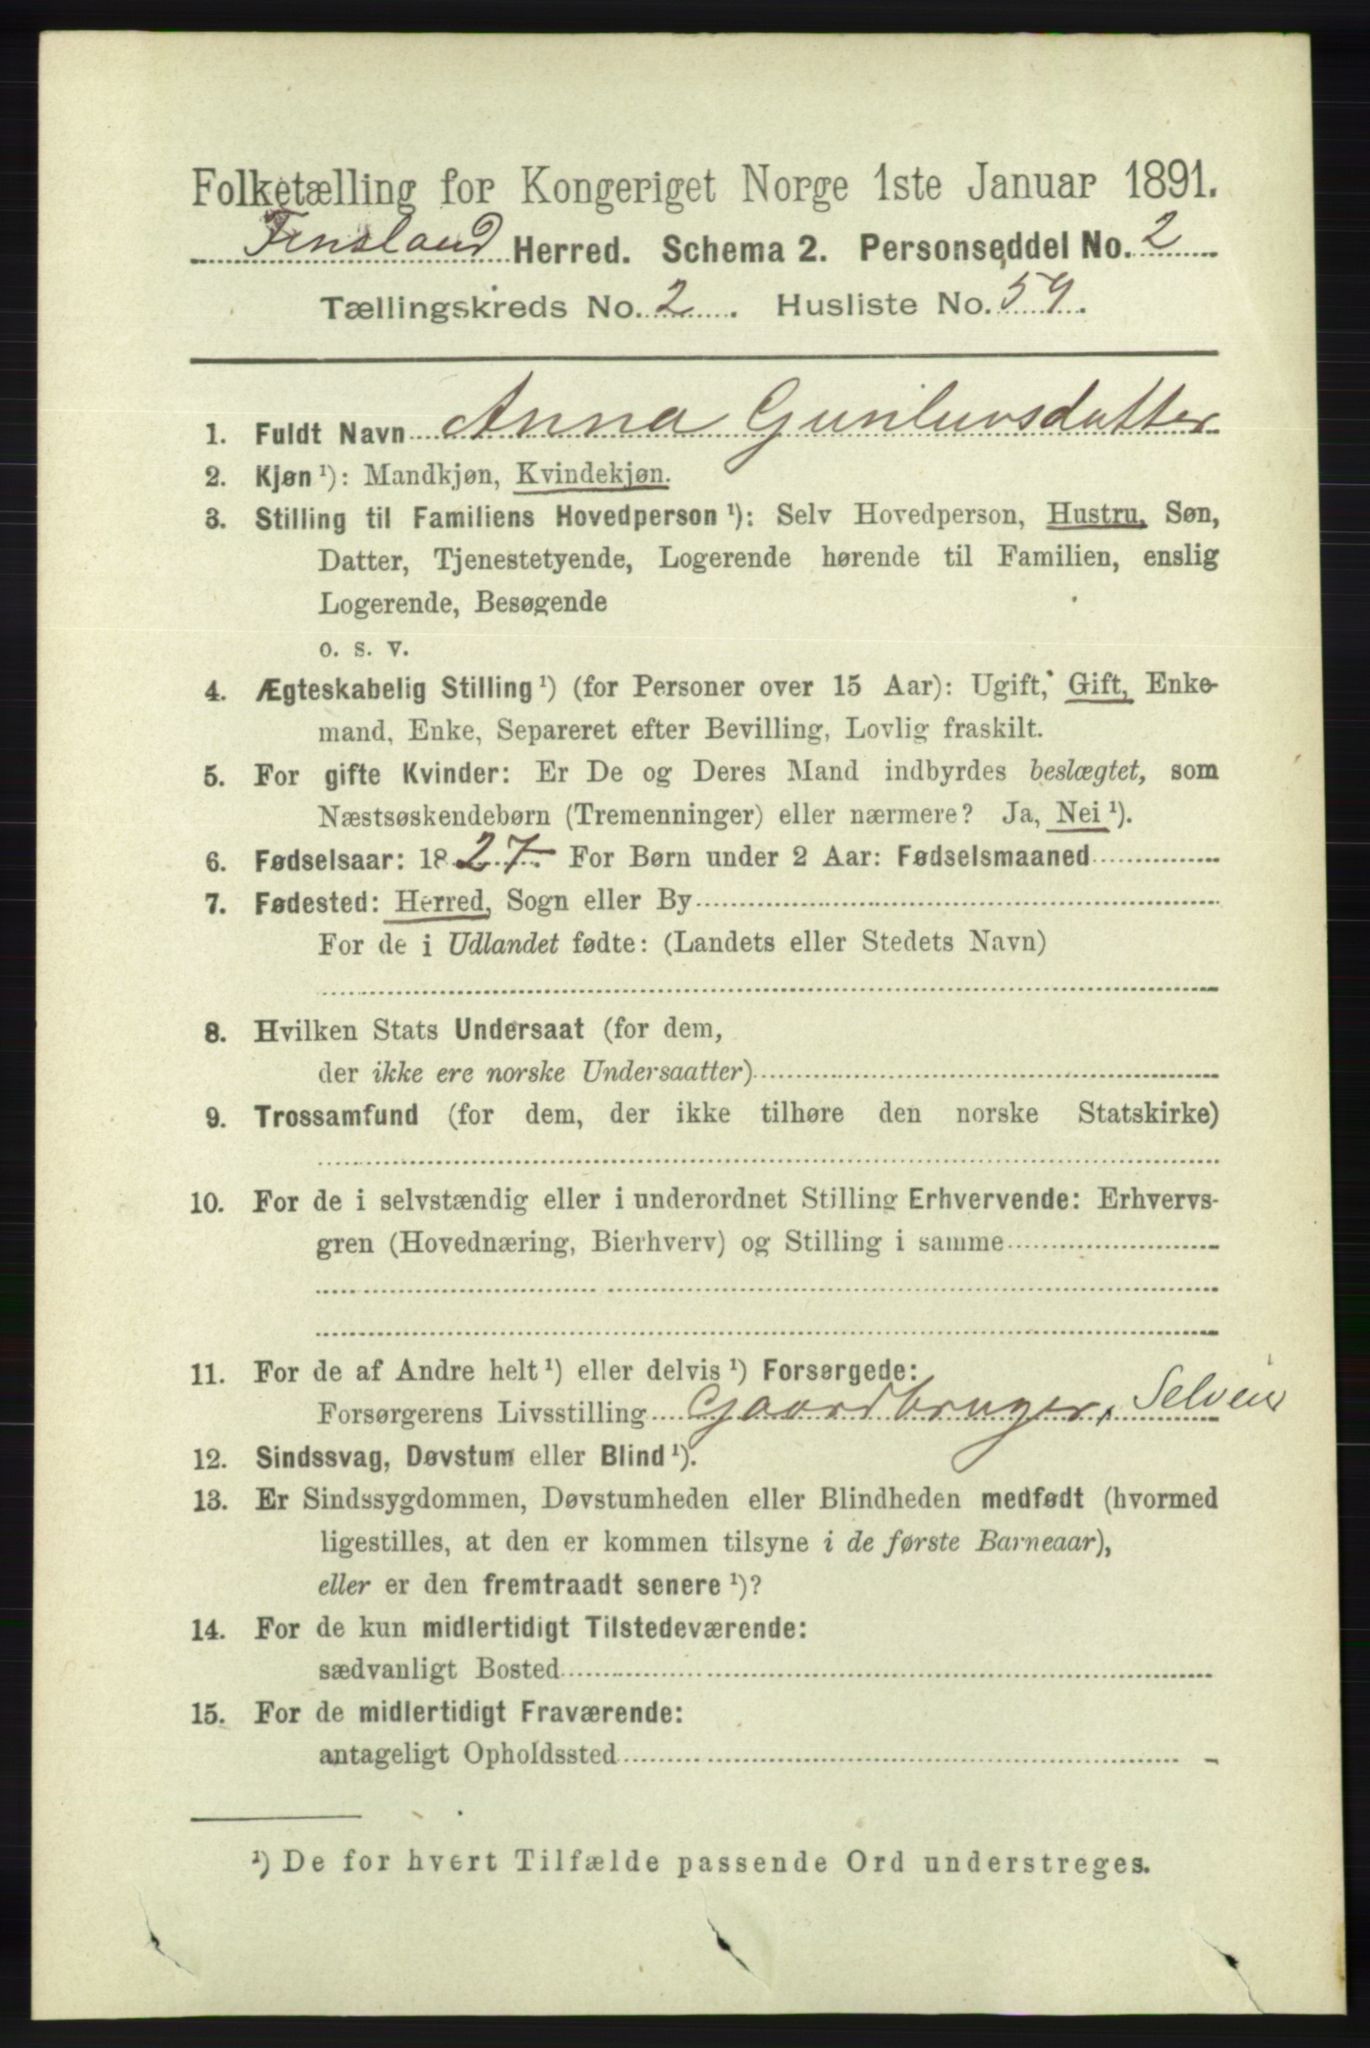 Folketælling for Kongeriget Norge 1ste Januar 1891.
Finsland Herred. Schema 2. Personseddel No. 2
Tællingskreds No. 2. Husliste No. 59.
1. Fuldt Navn Anna Gunluvsdatter
2. Kjøn ¹): Mandkjøn, Kvindekjøn.
3. Stilling til Familiens Hovedperson ¹): Selv Hovedperson, Hustru, Søn,
Datter, Tjenestetyende, Logerende hørende til Familien, enslig
Logerende, Besøgende
o. s. v.
4. Ægteskabelig Stilling ¹) (for Personer over 15 Aar): Ugift, Gift, Enke-
mand, Enke, Separeret efter Bevilling, Lovlig fraskilt.
5. For gifte Kvinder: Er De og Deres Mand indbyrdes beslægtet, som
Næstsøskendebørn (Tremenninger) eller nærmere? Ja, Nei ¹).
6. Fødselsaar: 1827. For Børn under 2 Aar: Fødselsmaaned
7. Fødested: Herred, Sogn eller By
For de i Udlandet fødte: (Landets eller Stedets Navn)
8. Hvilken Stats Undersaat (for dem,
der ikke ere norske Undersaatter)
9. Trossamfund (for dem, der ikke tilhøre den norske Statskirke)
10. For de i selvstændig eller i underordnet Stilling Erhvervende: Erhvervs-
gren (Hovednæring, Bierhverv) og Stilling i samme
11. For de af Andre helt ¹) eller delvis ¹) Forsørgede:
Forsørgerens Livsstilling Gaardbruger, Selveier
12. Sindssvag, Døvstum eller Blind ¹).
13. Er Sindssygdommen, Døvstumheden eller Blindheden medfødt (hvormed
ligestilles, at den er kommen tilsyne i de første Barneaar),
eller er den fremtraadt senere ¹)?
14. For de kun midlertidigt Tilstedeværende:
sædvanligt Bosted
15. For de midlertidigt Fraværende:
antageligt Opholdssted
¹) De for hvert Tilfælde passende Ord understreges.